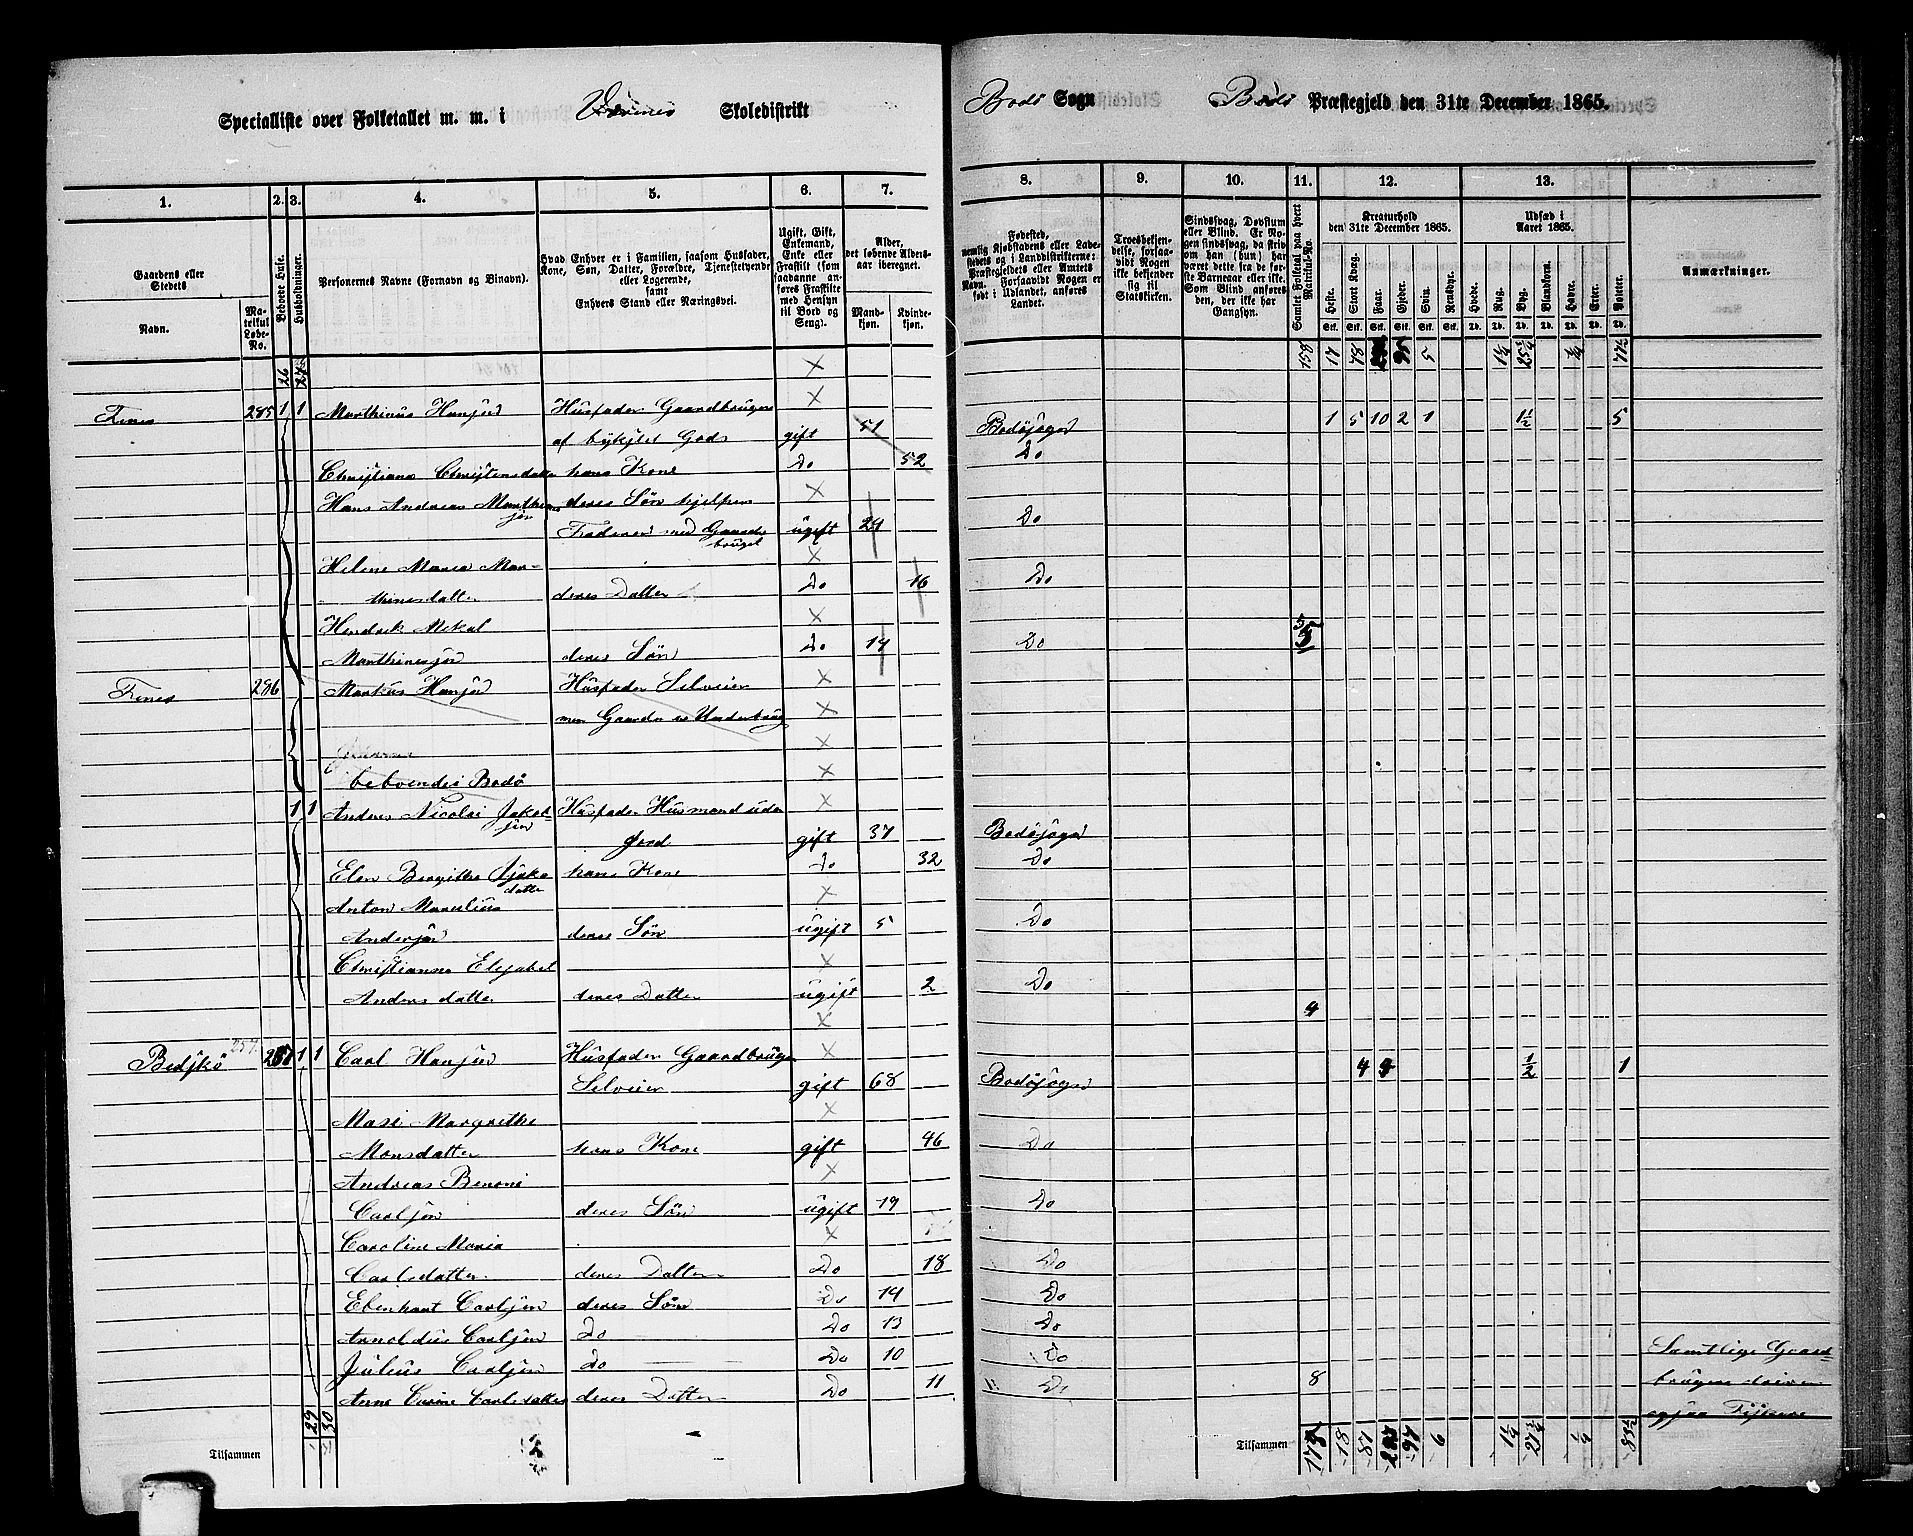 Specialliste over Folketallet m. m. i Skoledistrikt
Bodö Sogn Bodö Præstegjeld den 31te December 1865.
1. 2. 3. 4. 5. 6. 7. 8. 9. 10. 11. 12. 13.
Gaardens eller Stedets
Navn.
Matrikul Løbe-No.
Beboede Huse.
Husholdninger.
Personernes Navne (Fornavn og Binavn).
Hvad Enhver er i Familien, saasom Husfader, Kone, Søn, Datter, Forældre, Tjenestetyende eller Logerende, samt Enhvers Stand eller Næringsvei.
Ugift, Gift, Enkemand, Enke eller Fraskilt (som saadanne anføres Fraskilte med Hensyn til Bord og Seng).
Alder, det løbende Aldersaar iberegnet.
Mandkjøn. Kvindekjøn.
Fødested, nemlig Kjøbstadens eller Ladestedets og i Landdistrikterne: Præstegjeldets eller Amtets Navn. Forsaavidt Nogen er født i Udlandet, anføres Landet.
Troesbekjendelse, forsaavidt Nogen ikke bekjender sig til Statskirken.
Sindssvag, Døvstum eller Blind. Er Nogen sindssvag, da hvorvidt han (hun) har været dette fra de første Barneaar eller ikke. Som Blind anføres de, der ikke har Gangsyn.
Samlet Folketal paa hvert Matrikul-No.
Kreaturhold den 31te December 1865.
Heste. Stort Kvæg. Faar. Gjeder. Svin. Rensdyr.
Udsæd i Aaret 1865.
Hvede. Rug. Byg. Blandkorn. Havre. Erter. Poteter.
Anmærkninger.
26 27 158 17 78 5
Fenes 285 1 1 Marthinus Hansen Husfader Gaardbruger
af bykslet Gods gift 51 Bodösogn 1 5 10 2 1 1½ 5
Christiana Christensdatter hans Kone Do 52 Do
Hans Andreas Marthinussen deres Søn hjelper
Faderen med Gaardsbruget ugift 29 Do
Helene Maria Mar-
thinesdatter deres Datter Do 16 Do
Hendrik Mekal
Marthinesøn deres Søn Do 14 Do 5
Fenes 286 Markus Hansen Husfader Selveier
men Gaarden er Underbrug
beboendes Bodö
1 1 Anders Nicolai Jakobsen Husfader Husmand uden
Jord gift 37 Bodösogn
Elen Birgithe datter hans Kone Do 32 Do
Anton Marelius
Andersen deres Søn ugift 5 Do
Christianna Elisabet
Andersdatter deres Datter ugift 2 Do 4
Bedskö 287 1 1 Carl Hansen Husfader Gaardbruger
Selveier gift 68 Bodösogn 4 ½ 1
Masi Margrethe
Monsdatter hans Kone gift 46 Do
Andreas Benoni
Carlsen deres Søn ugift 19 Do
Caroline Maria
Carlsdatter deres Datter Do 18 Do
Ebenhart Carlsen deres Søn Do 14 Do
Arnoldus Carlsen Do Do 13 Do
Julius Carlsen Do Do 10 Do
Anne Carine Carlsdatter deres Datter Do 11 Do 8
Samtlige Gaard-
brugere driver
ogsaa Fiskeri
Tilsammen 29 30
Tilsammen 175 18 87 97 6